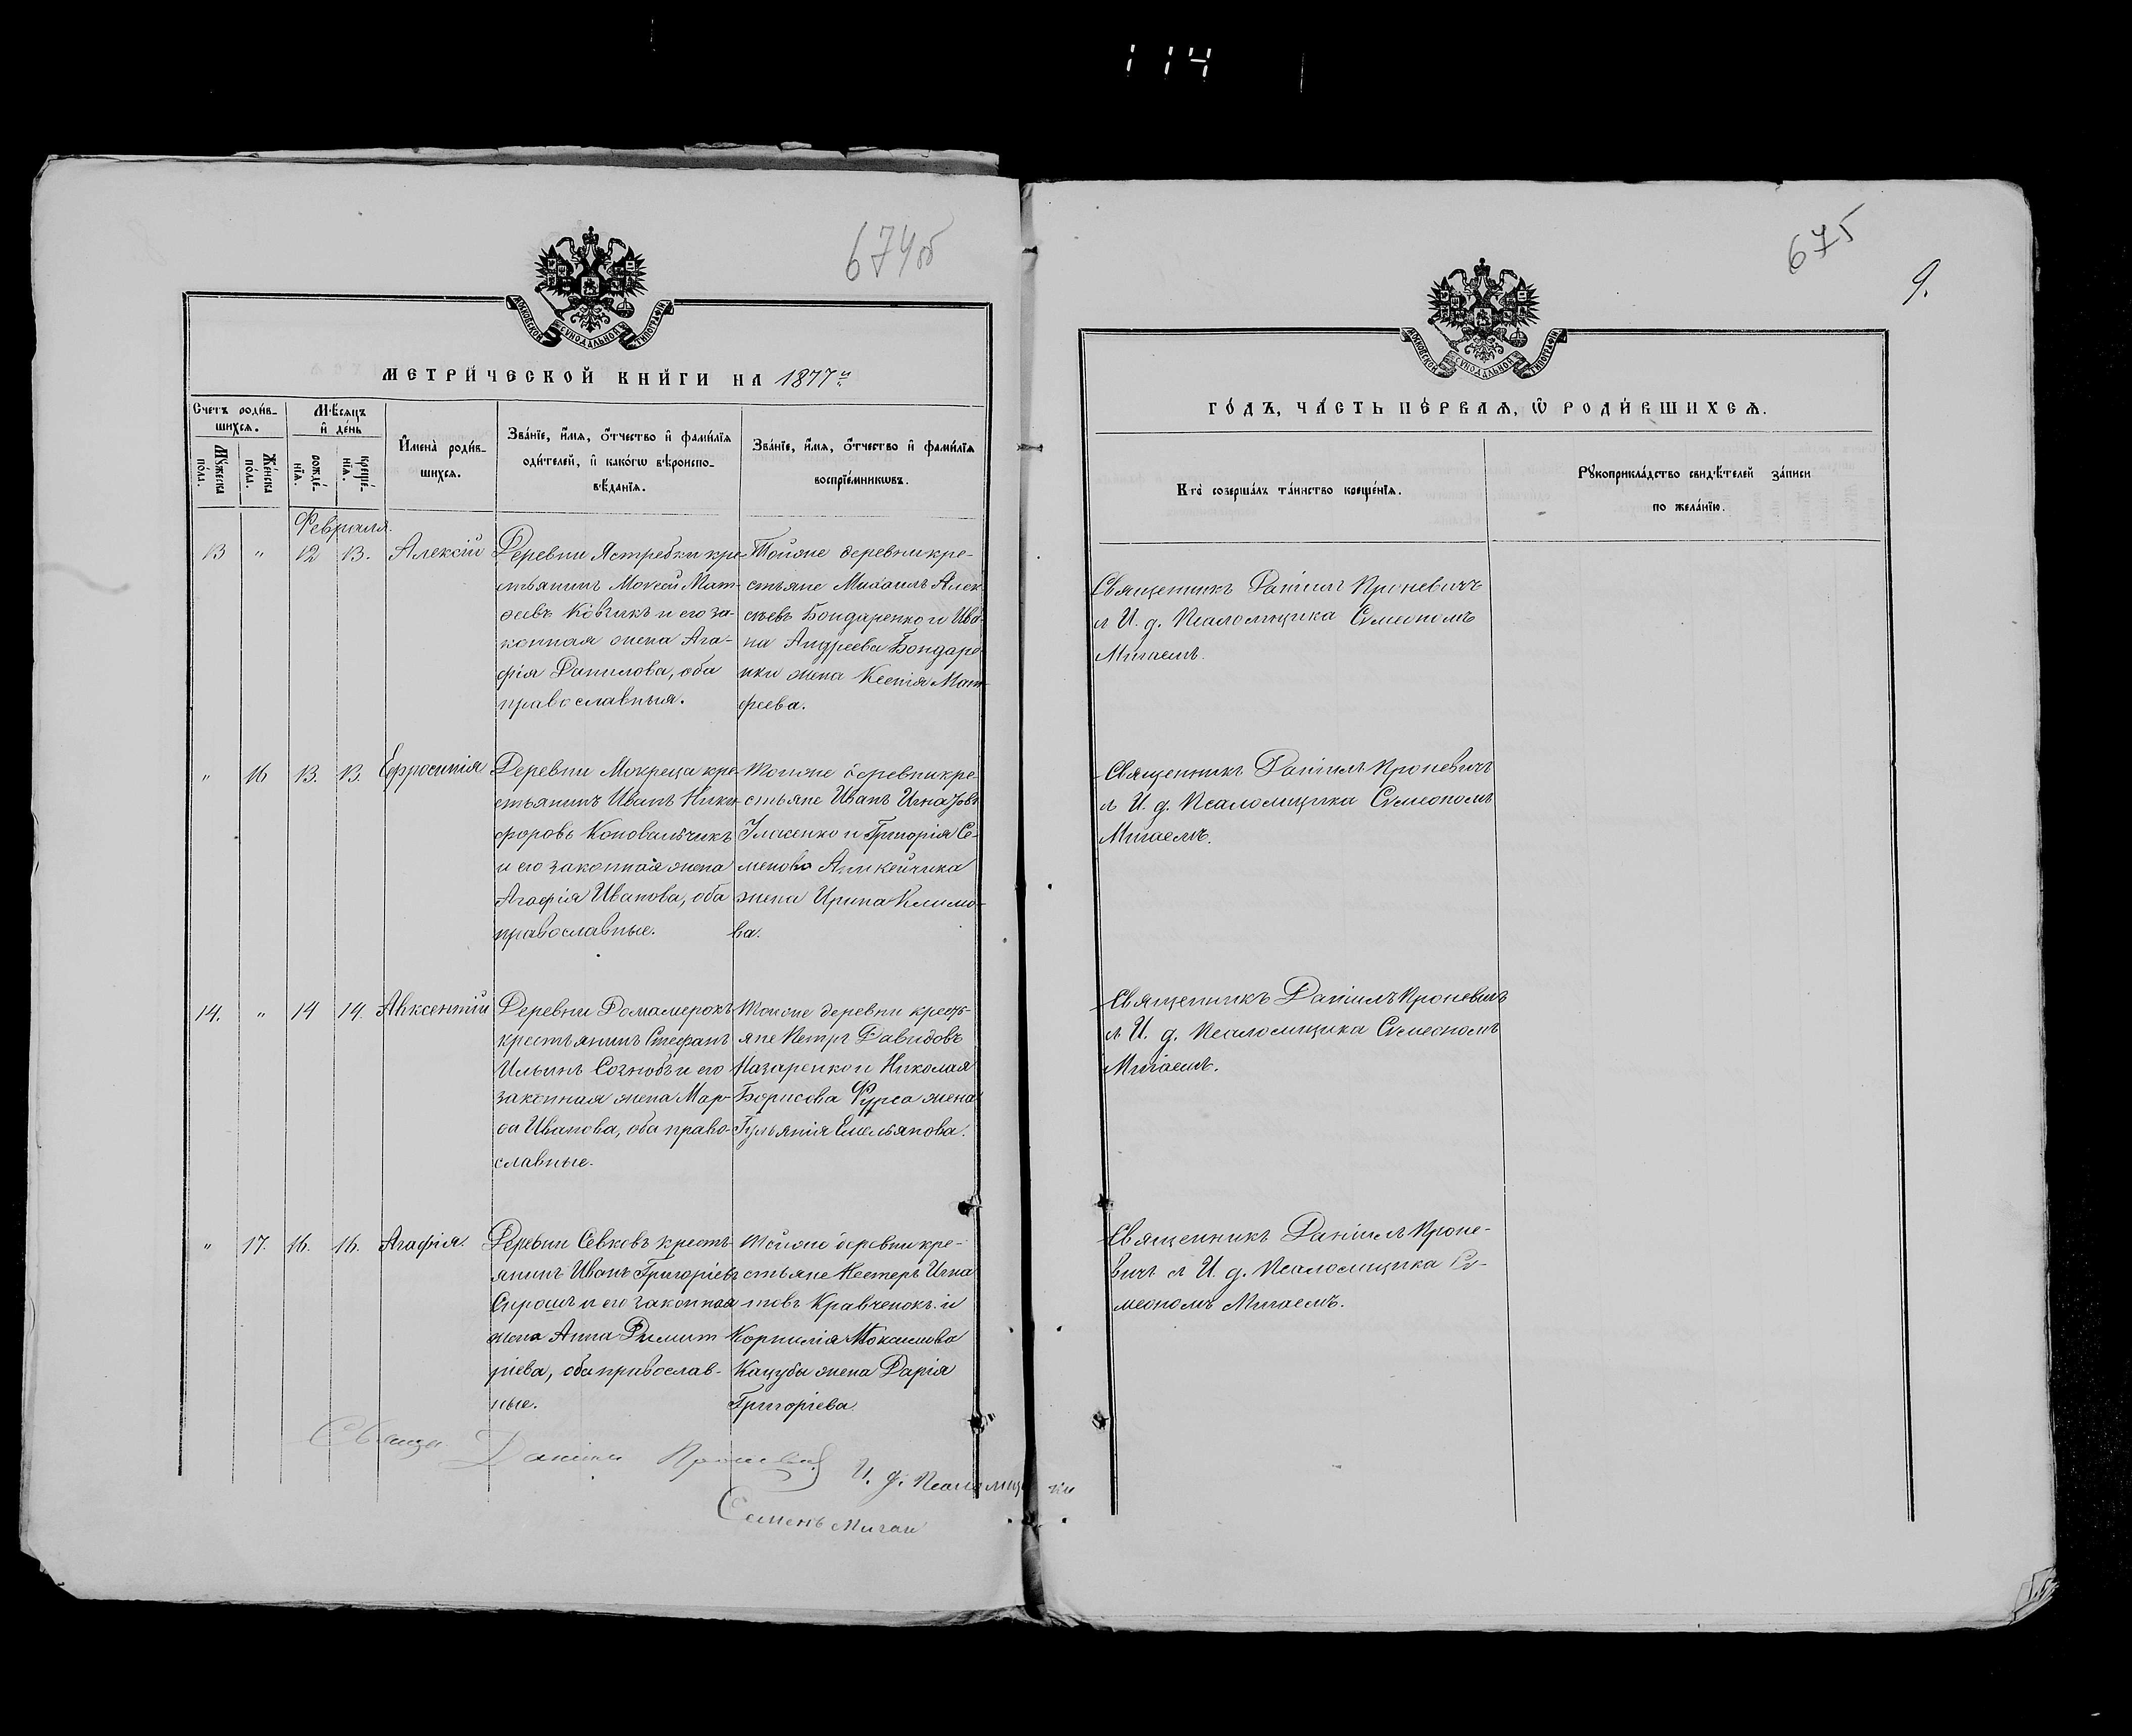 114
674об
МЕТРИ́ЧЕСКОЙ КНИ́ГИ НА 1877й
Счетъ роди́в-
шихся.
Мѣ́сяцъ
и҆ де́нь
И҆мена̀ роди́в-
шихся.
Зва́нїе, и҆́мя, ѻ҆́тчество и҆ фами́лїя
роди́телей, и҆ како́гѡ вѣроиспо-
вѣ́данїя.
Зва́нїе, и҆́мя, ѻ҆́тчество и҆ фами́лїя
воспрїе́мникѡвъ.
Мꙋ́жеска
по́ла.
Же́нска
по́ла.
рожде́-
нїя.
креще́-
нїя.
Февраля.
13 " 12 13. Алексій
Деревни Ястребки кре-
стьянинъ Мокей Мат-
ѳеевъ Ковзикъ и его за-
конная жена Ага-
фія Данилова, оба
православныя.
Тойже деревни кре-
стьяне Михаилъ Алек-
сѣевъ Бондаренко и Ива-
на Андреева Бондаре-
нки жена Ксенія Мат-
феева.
" 16 13. 13. Ефросинія
Деревни Мокреца кре-
стьянинъ Иванъ Ники-
форовъ Коновальчикъ
и его законная жена
Агафія Иванова, оба
православные.
Тойже деревни кре-
стьяне Иванъ Игнатовъ
и Григорія Се-
менова Аникейчика
жена Ирина Климо-
ва.
14. " 14 14. Авксентій
Деревни Домамерокъ
крестьянинъ Стефанъ
Ильинъ Сознобъ и его
законная жена Мар-
ѳа Иванова, оба право-
славные.
Тойже деревни кресть-
яне Петръ Давидовъ
Назаренко и Николая
Борисова Фурса жена
Гульянія Емельянова.
" 17. 16. 16. Агафія.
Деревни Севковъ кресть-
янинъ Иванъ Григоріевъ
Сирошъ и его законная
жена Анна Димит
ріева, оба православ-
ные.
Тойже деревни кре-
стьяне Нестеръ Игна
товъ Кравченокъ и
Корнилія Максимова
Кацубы жена Дарія
Григоріева.
Свящ. Даніилъ Кроневичъ
И. д. Псаломщика
Семенъ Мигай
675
9.
ГО́ДЪ, ЧА́СТЬ ПЕ́РВАЯ, Ѡ҆ РОДИ́ВШИХСЯ.
Кто̀ соверша́лъ та́инство креще́нїя.
Рꙋкоприкла́дство свидѣ́телей за́писи
по жела́нїю.
Священникъ Даніилъ Кроневичъ
съ И. д. Псаломщика Сѵмеономъ
Мигаемъ.
Священникъ Даніилъ Кроневичъ
съ И. д. Псаломщика Сѵмеономъ
Мигаемъ.
Священникъ Даніилъ Кроневичъ
съ И. д. Псаломщика Сѵмеономъ
Мигаемъ.
Священникъ Даніилъ Кроне-
вичъ съ И. д. Псаломщика Сѵ-
меономъ Мигаемъ.